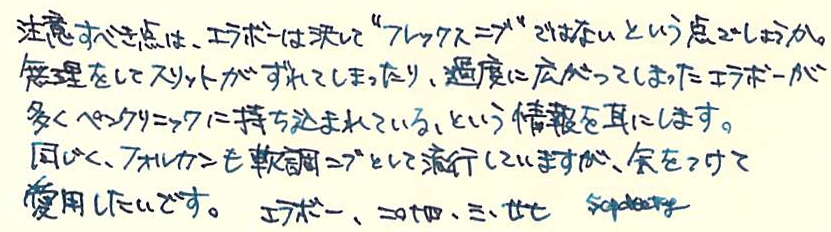 注意すべき点は、エラボーは決して"フレックスニブ"ではないという点でしょうか。
無理をしてスリットがずれてしまったり、過度に広がってしまったエラボーが
多くペンクリニックに持ち込まれている、という情報を耳にします。
同じく、フォルカンも軟調ニブとして流行していますが、気をつけて
愛用したいです。 エラボー、